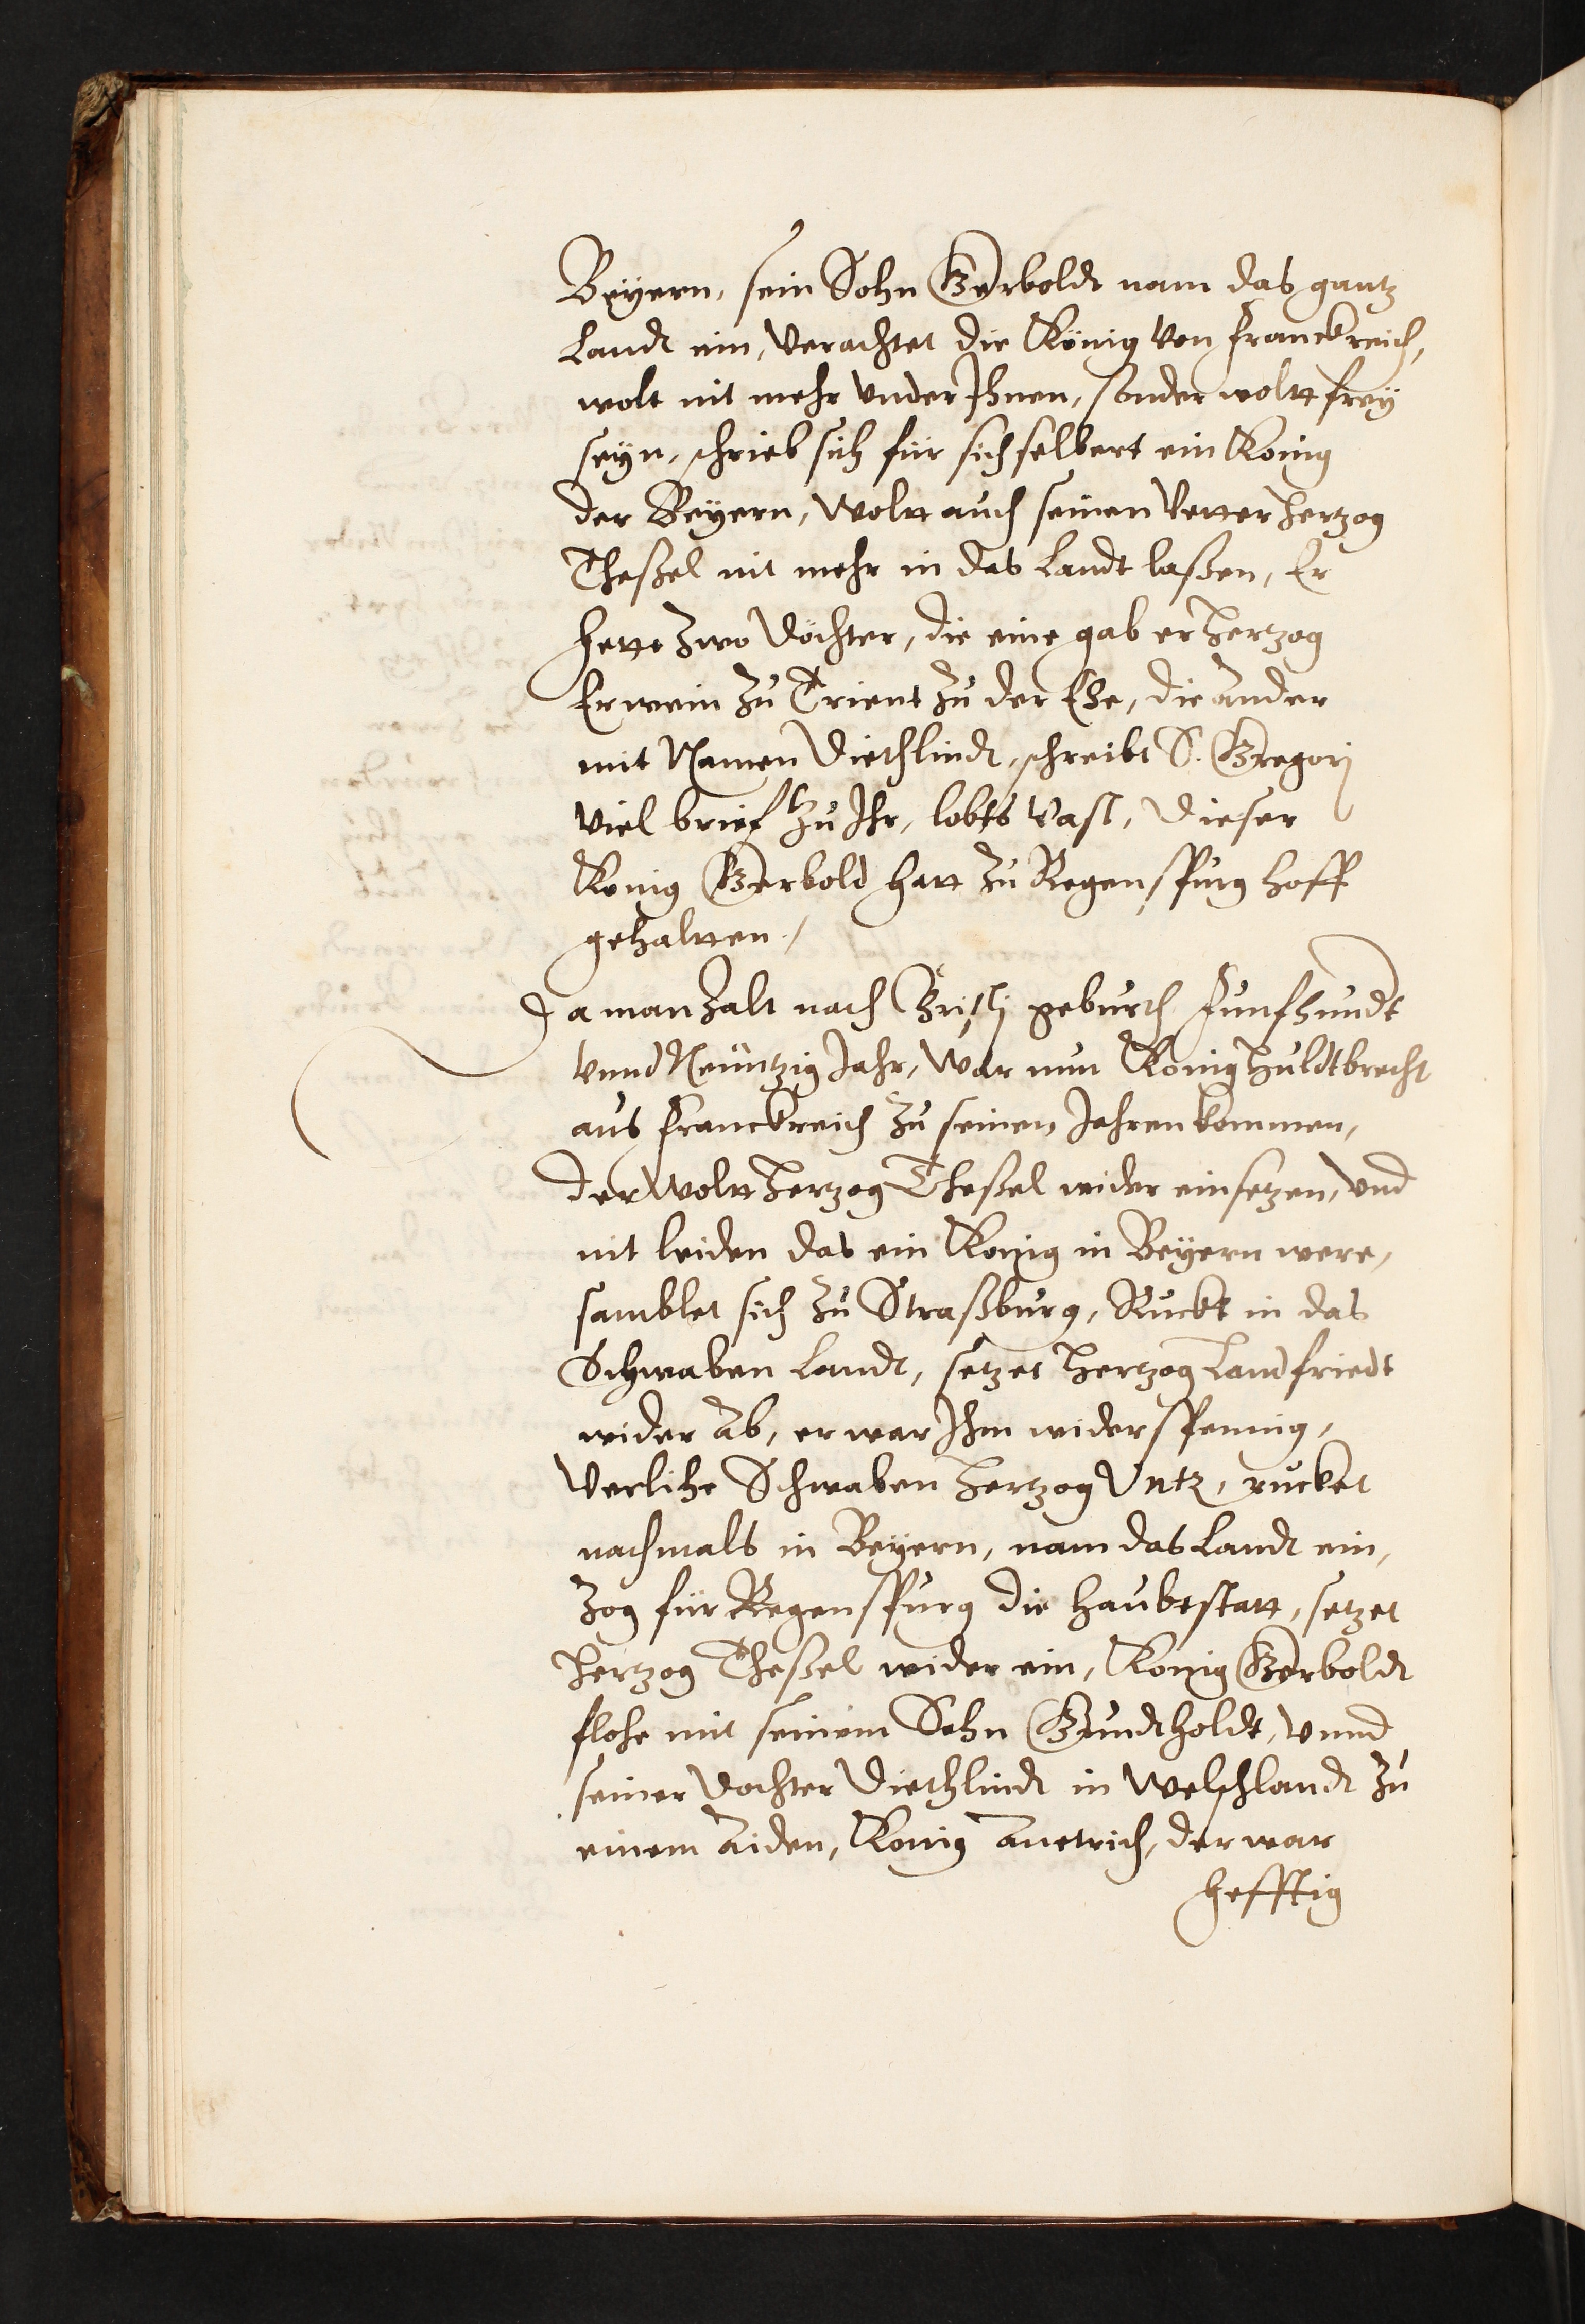 Beÿern, sein Sohn Gerboldt nam das gantz
Landt ein, Verachtet die König Von Franckreich,
wolt nit mehr Vnder Ihnen, sonder woltt freÿ
seÿn, schrieb sich für sich selbert ein König
der Beÿern, Woltt auch seinen Vetter Hertzog
Theßel nit mehr in das Landt laßen, Er
hette Zwo Döchter, die eine gab er Hertzog
Erwein Zu Trient Zu der Ehe, die ander
mit Namen Diethlindt, schreibt S. Gregorj
Viel brief Zu Ihr, lobts Vast, Dieser
König Gerbold hatt Zu Regenspurg hoff
gehaltten./
Da man Zalt nach Christj geburth Funfhundt
Vnnd Neüntzig Jahr, War nun König Huldtbrecht
aus Franckreich Zu seinen Jahren kommen,
der Woltt Hertzog Theßel wider einsetzen, Vnd
nit leiden das ein König in Beÿern were,
samblet sich Zu Straßburg, Ruckt in das
Schwaben Landt, setzet Hertzog Landfriedt
wider Ab, er war Ihm widerspennig,
Verlihe Schwaben Hertzog Vntz, rucket
nachmals in Beÿern, nam das Landt ein,
Zog für Regenspurg die Haubtstatt, setzet
Hertzog Theßel wider ein, König Gerboldt
flohe mit seinem Sohn Gundtholdt, Vnnd
seiner Dochter Diethlindt in Welschlandt Zu
einem Aiden, König Antrich, der war
hefftig